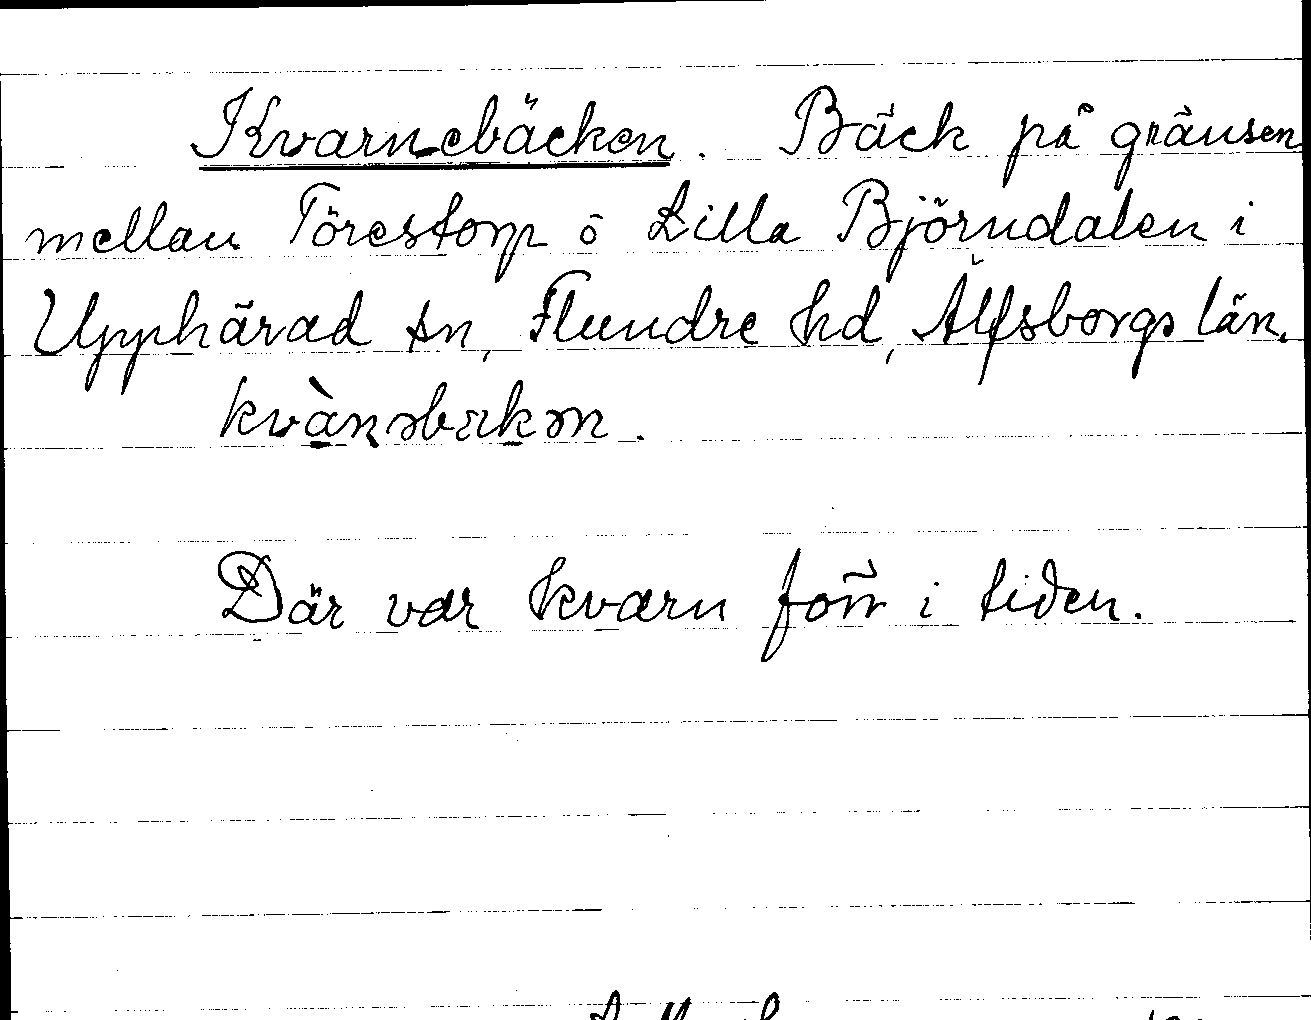 Kvarnebäcken. Bäck på gränsen
mellan Törestorp o Lilla Björndalen i
Upphärad sn, Flundre hd, Älfsborgs län.
kvànəbækən.
Där var kvarn förr i tiden.